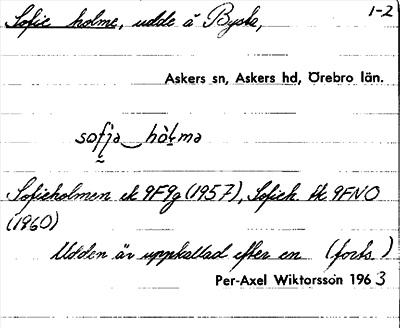 Sofie holme, udde å Bysta, 1-2
Askers sn, Askers hd, Örebro län.
sofjə‿hòḷmə
Sofieholmen ek 9F9g (1957), Sofieh. tk 9FNO
(1960)
Udden är uppkallad efter en (forts.)
Per-Axel Wiktorsson 1963